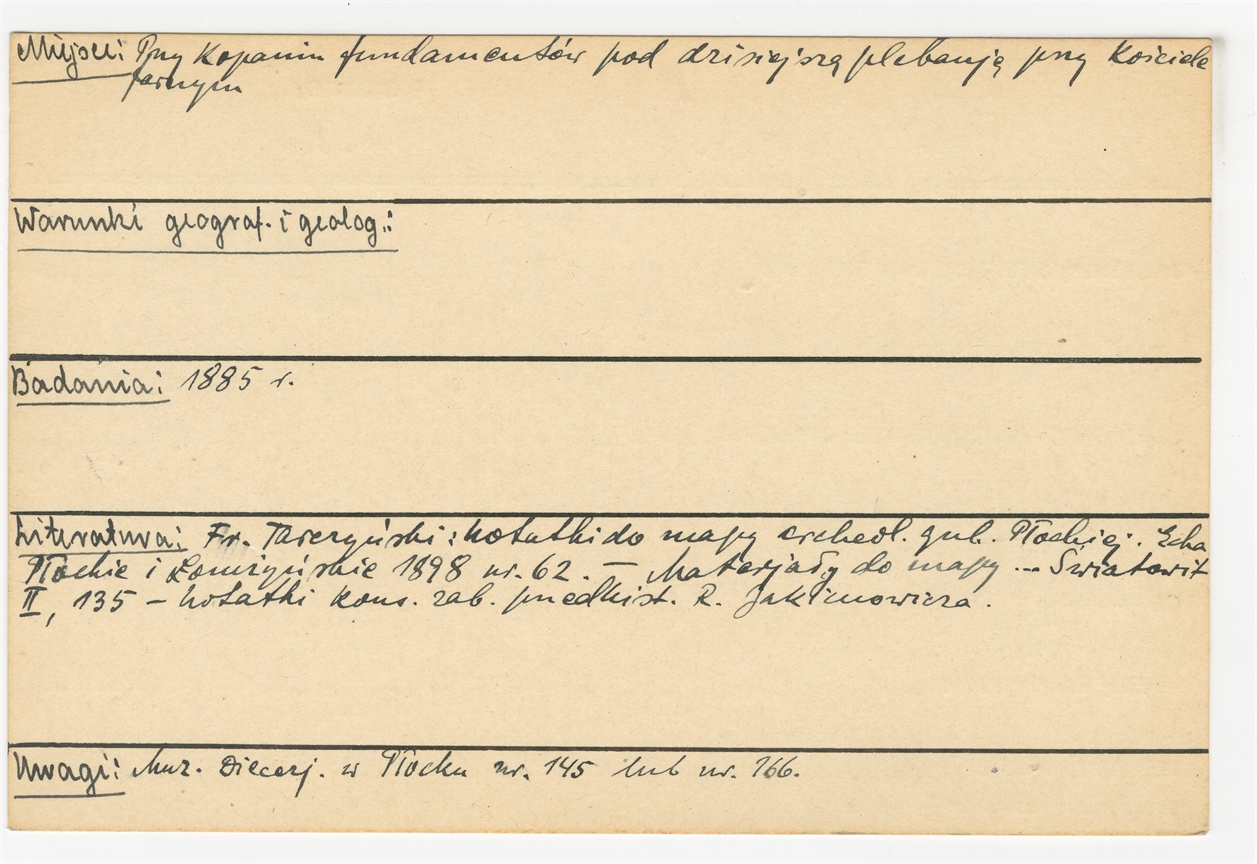 Miejsce: Przy kopaniu fundamentów pod dzisiejszą plebanją przy kościele
farnym
Warunki geograf. i geolog.:
Badania: 1885 r.
Literatura: Fr. Tarczyński: Notatki do mapy archeol. gub. Płockiej. Echa
Płockie i Łomżyńskie 1898 nr. 62. — Materjały do mapy ... Światowit
II, 135 – Notatki kons. zab. przedhist. R. Jakimowicza.
Uwagi: Muz. Diecezj. w Płocku nr. 145 lub nr. 166.